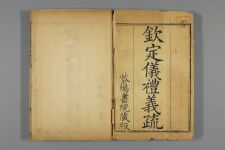 欽定儀禮義疏
紫陽書院藏板